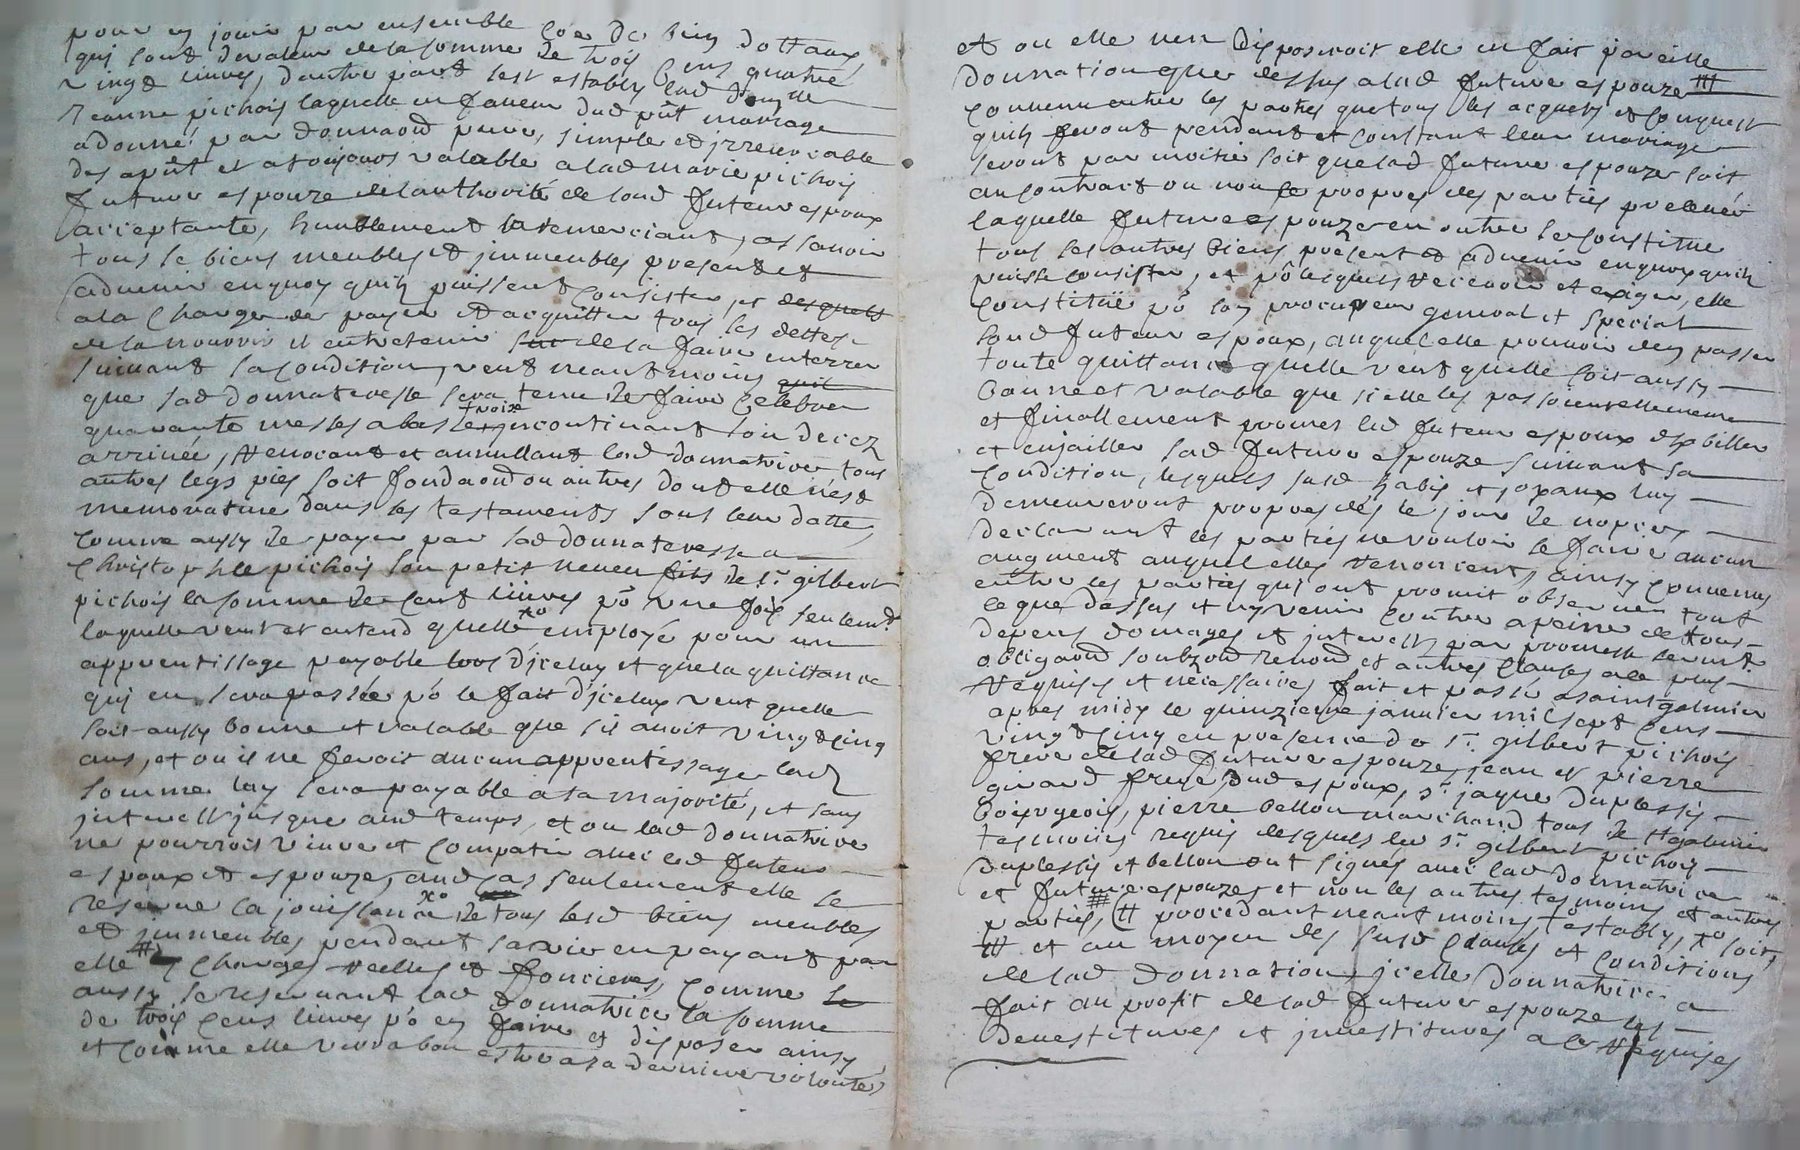 pour en jouir par ensemble coe de bien dottaux
qui sont de valeur de la somme de trois cens quatre
vingt livres, d'autre part sest estably lad dam.lle
Jeanne pichois laquelle en faveur dud pnt mariage
a donné par donnaon pure, simple et irrevocable
des apnt et a toujours valable a lad marie pichois
future espouze de lauthorité de sond futeur espoux
acceptante, humblement la remerciant, assavoir
tous se biens meubles et immeubles present et
advenir en quoy quils puissent consister et desquels
a la charge de payer et acquitter tous ses dettes
de la nourrir et entretenir sur de la faire enterrer
suivant sa condition, veut neantmoins quil
que sad donnateresse sera tenu de faire celebrer
quarante messes a basse voix incontinant son decez
arrivée, revocant et annullant lad donnatrice tous
autres legs pies soit fondaon ou autres dont elle n'est
memorative dans les testaments sous leur datte,
comme aussy de payer par sad donnateresse a
christophle pichois son petit neveu fils de sr gilbert
pichois la somme de cent livres po' une fois seulemt
laquelle veut et entend quelle xo employé pour un
apprentissage payable lors d'jceluy et que la quittance
qui en sera passée po' le fait d'jceluy veut quelle
soit aussy bonne et valable que s'il avoit vingt cinq
ans, et ou il ne feroit aucun apprentissage lad
somme luy sera payable a sa majorité, et sans
jnterest jusque aud temps, et ou lad donnatrice
ne pourroit vivre et compatir avec led futeur
espoux et espouze, aud cas seulement elle se
reserve la jouissance xo de tous lesd biens meubles
et jmmeubles pendant sa vie en payant par
elle les charges reelles et foncieres, comme se
aussy se reservant lad donnatrice la somme
de trois cens livres po' en faire et disposer ainsy
et comme elle verra bon estre a sa derniere volonté,
et ou elle n'en disposeroit elle en fait pareille
donnation que dessus a lad future espouze
convenu entre les parties que tous les acquets et conquest
quils feront pendant et constant leur mariage
seront par moitié soit que lad future espouze soit
au contract ou non se propres des parties prelevé
laquelle future espouze en outre se constitue
tous ses autres biens present et advenir en quoy quils
puisse consister, et po' lesquels recevoir et exiger, elle
constitüe po' son procureur general et special
sond futeur espoux, auquel elle pouvoir d'en passer
toute quittance quelle veut quelle soit aussy
bonne et valable que si elle les passoient ellememe
et finallement promet led futeur espoux d'habiller
et enjailler sad future espouze suivant sa
condition, lesquels susd habis et joyaux luy
demeureront propres dés le jour de nopces
declarant les parties ne vouloir se faire aucun
augment auquel elles renoncent, ainsy convenu
entre les parties qui ont promit observer tout
ce que dessus et n'y venir contre a peine de tous
depens domages et jnterests par promesse serment
obligaon soubzon renon et autres clauses a ce plus
requises et necessaires fait et passé a saint galmier
apres midy le quinzieme janvier mil sept cens
vingt cinq en presence de sr. gilbert pichois
frere de lad future espouze, jean et pierre
girard frere dud espoux, sr. jaque duplessis
bourgeois, pierre bellon marchand tous de st galmier
tesmoins requis lesquels led sr. gilbert pichois
duplessis et bellon ont signés avec lad donnatrice
et future espouze, et non les autres tesmoins et autres
parties, # procedant neantmoins to establÿ, xo soit,
# et au moyen des susd clauses et conditions
de lad donnation, jcelle donnatrice a
fait au profit de lad future espouze les
devestitures et jnvestitures a ce requises